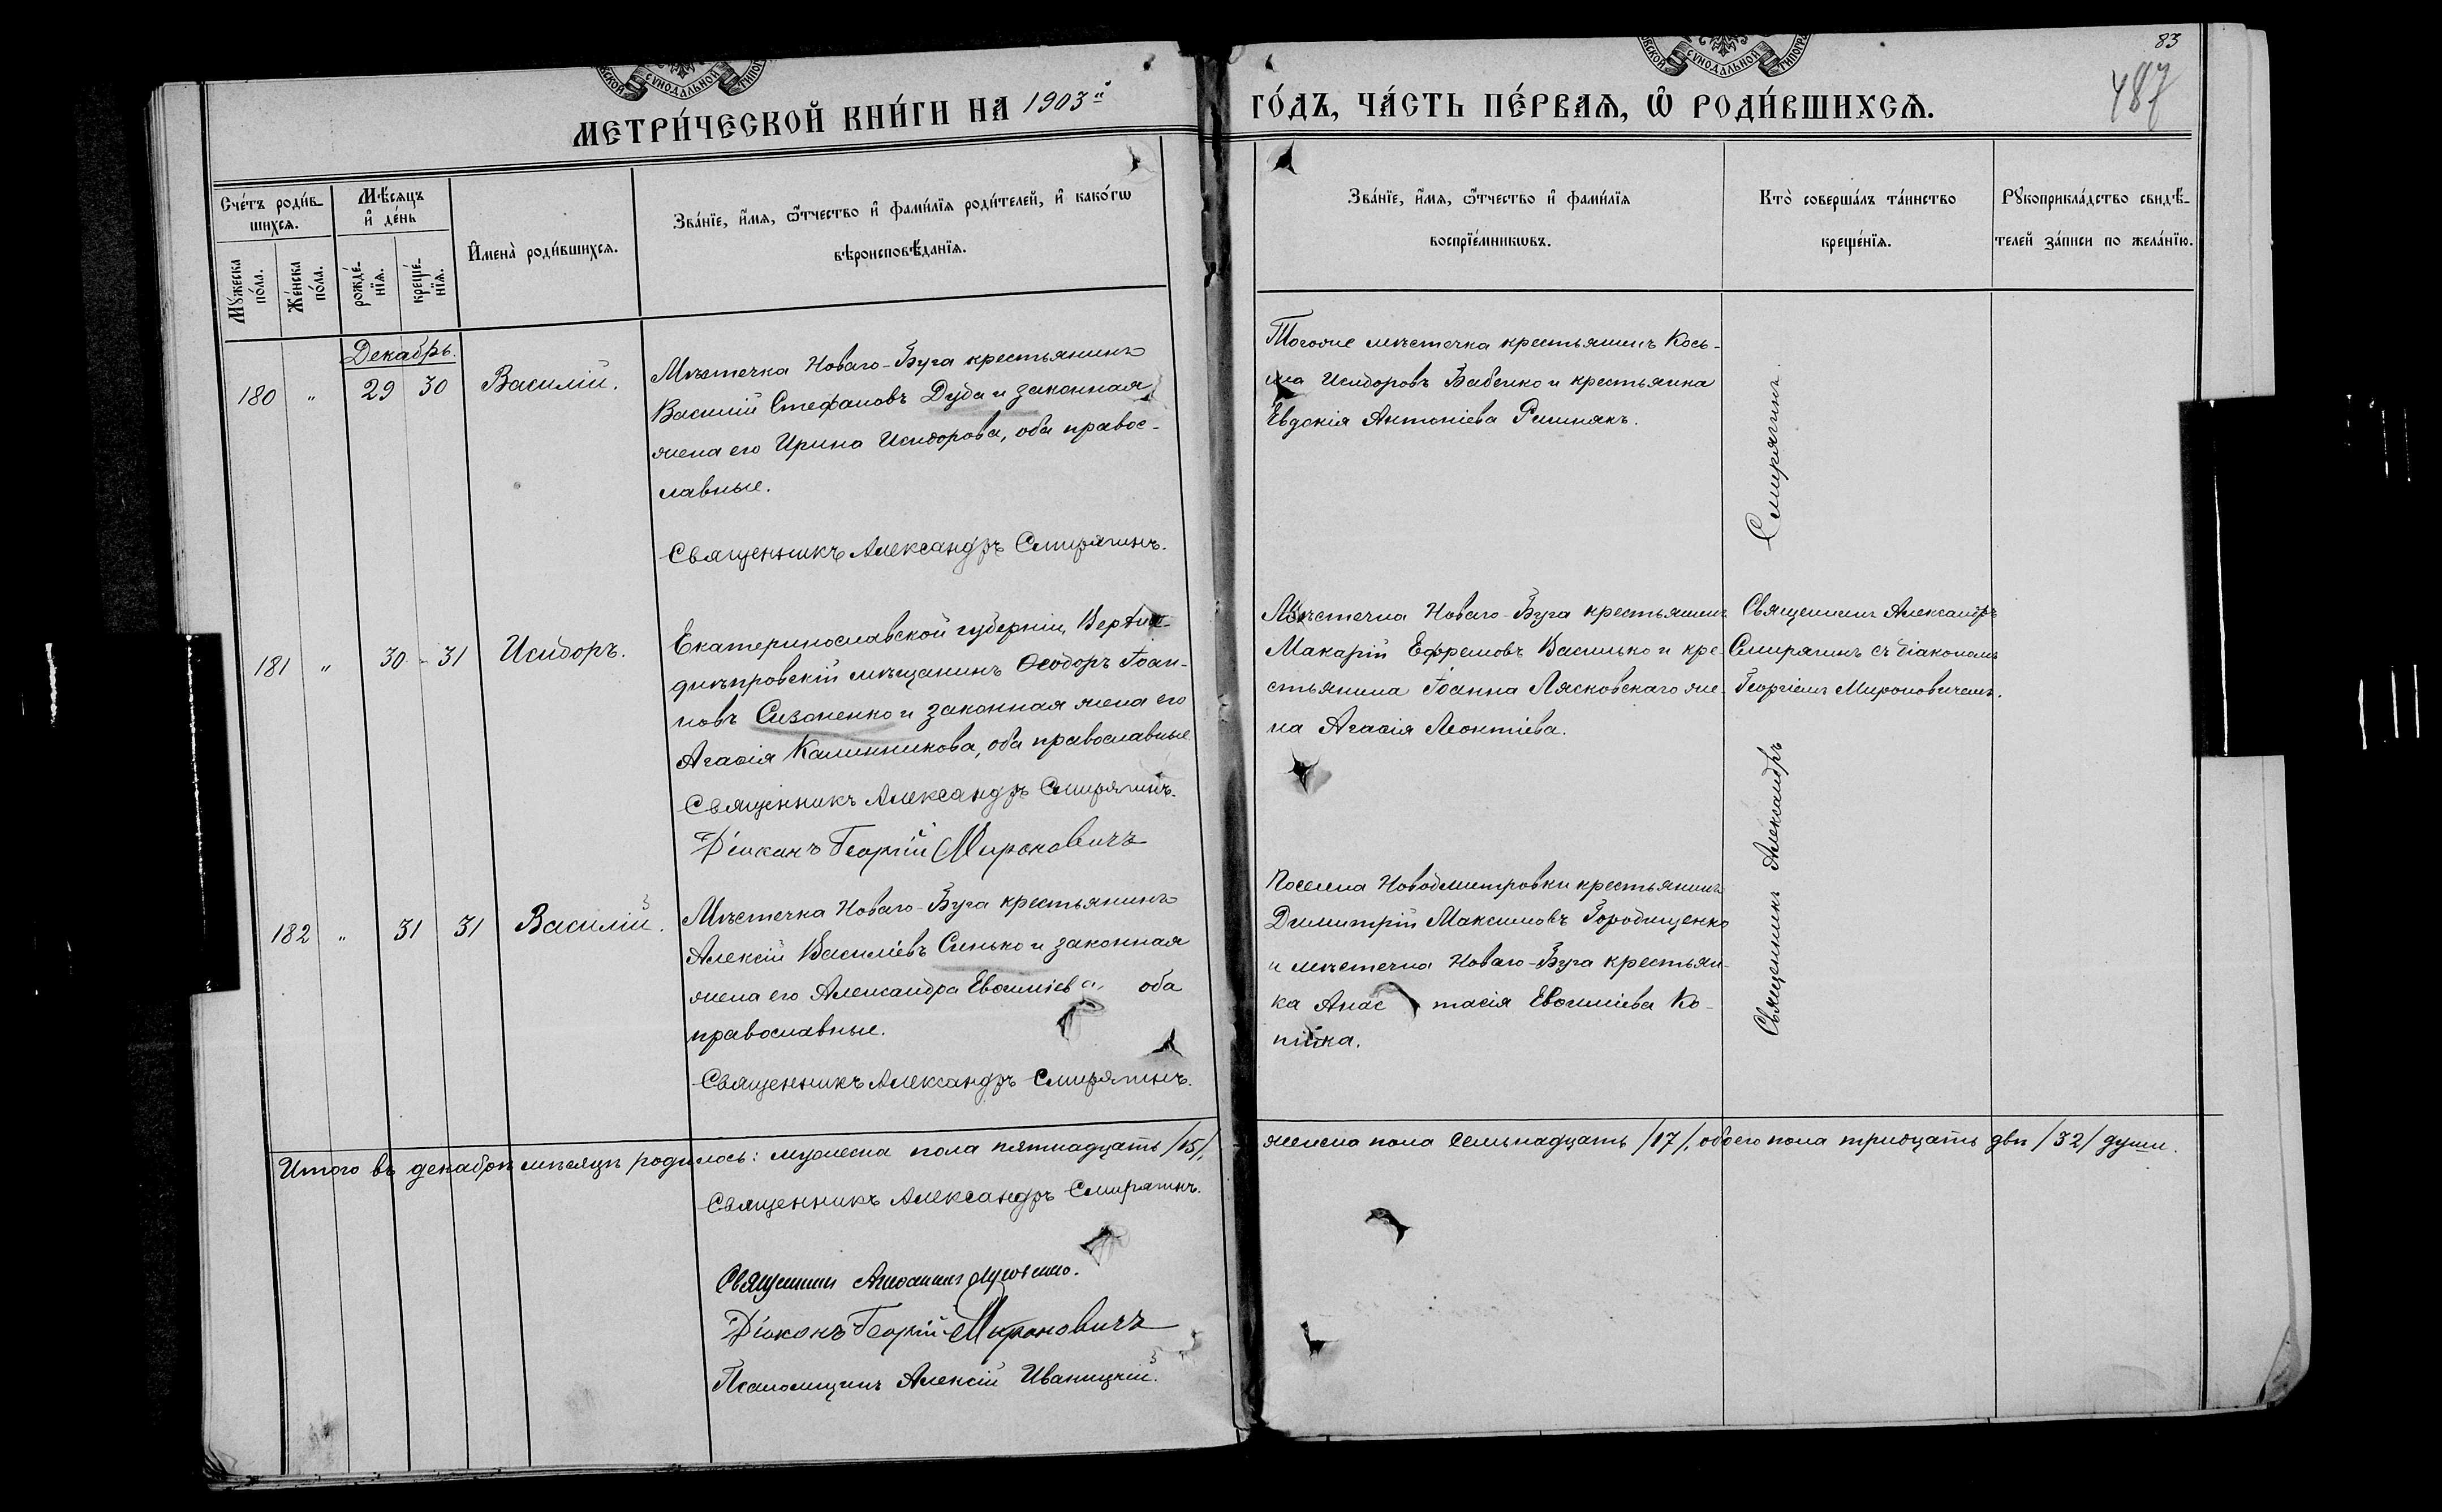 СУНОДАЛЬНОЙ
СУНОДАЛЬНОЙ
83
487
МЕТРИ́ЧЕСКОЙ КНИ́ГИ НА 1903й
ГО́ДЪ, ЧА́СТЬ ПЕ́РВАЯ, Ѿ РОДИ́ВШИХСЯ.
Сче́тъ роди́в-
шихся.
Му́жеска по́ла.
Же́нска по́ла.
Мѣ́сяцъ
и҆ де́нь
рожде́-
нїя.
креще́-
нїя.
И҆мена̀ роди́вшихся.
Зва́нїе, и҆́мя, ѻ҆́тчество и҆ фами́лїя роди́телей, и҆ како́гѡ
вѣроисповѣ́данїя.
Зва́нїе, и҆́мя, ѻ҆́тчество и҆ фами́лїя
воспрїе́мникѡвъ.
Кто̀ соверша́лъ та́инство
креще́нїя.
Рꙋкоприкла́дство свидѣ́-
телей за́писи по жела́нїю.
Декабрь.
180 " 29 30 Василій.
Мѣстечка Новаго-Буга крестьянинъ
Василій Стефановъ Дуба и законная
жена его Ирина Исидорова, оба правос-
лавные.
Священникъ Александръ Смирягинъ.
Тогоже мѣстечка крестьянинъ Кось-
ма Исидоровъ Бабенко и крестьянка
Евдокія Антоніева Ришнякъ.
181 " 30 - 31 Исидоръ.
Екатеринославской губерніи, Верхне-
днѣпровскій мѣщанинъ Ѳеодоръ Іоан-
новъ Сизоненко и законная жена его
Агаѳія Калинникова, оба православные
Священникъ Александръ Смирягинъ.
Діаконъ Георгій Мироновичъ
Мѣстечка Новаго-Буга крестьянинъ
Макарій Ефремовъ Василько и кре-
стьянина Іоанна Лясковскаго же-
на Агаѳія Леонтіева.
Священникъ Александръ
Смирягинъ съ діакономъ
Георгіемъ Мироновичемъ.
182 " 31 31 Василій.
Мѣстечка Новаго-Буга крестьянинъ
Алексій Василіевъ Синько и законная
жена его Александра Евѳиміева, оба
православные.
Священникъ Александръ Смирягинъ.
Поселка Новодмитровки крестьянинъ
Димитрій Максимовъ Городищенко
и мѣстечка Новаго-Буга крестьян-
ка Анастасія Евѳиміева Ко-
пійка.
Священникъ Александръ Смирягинъ.
Итого въ декабрѣ мѣсяцѣ родилось: мужеска пола пятнадцать /15/,
женска пола семьнадцать /17/, обоего пола тридцать двѣ /32/ души.
Священникъ Александръ Смирягинъ.
Священникъ
Діаконъ Георгій Мироновичъ
Псаломщикъ Алексій Иваницкій.